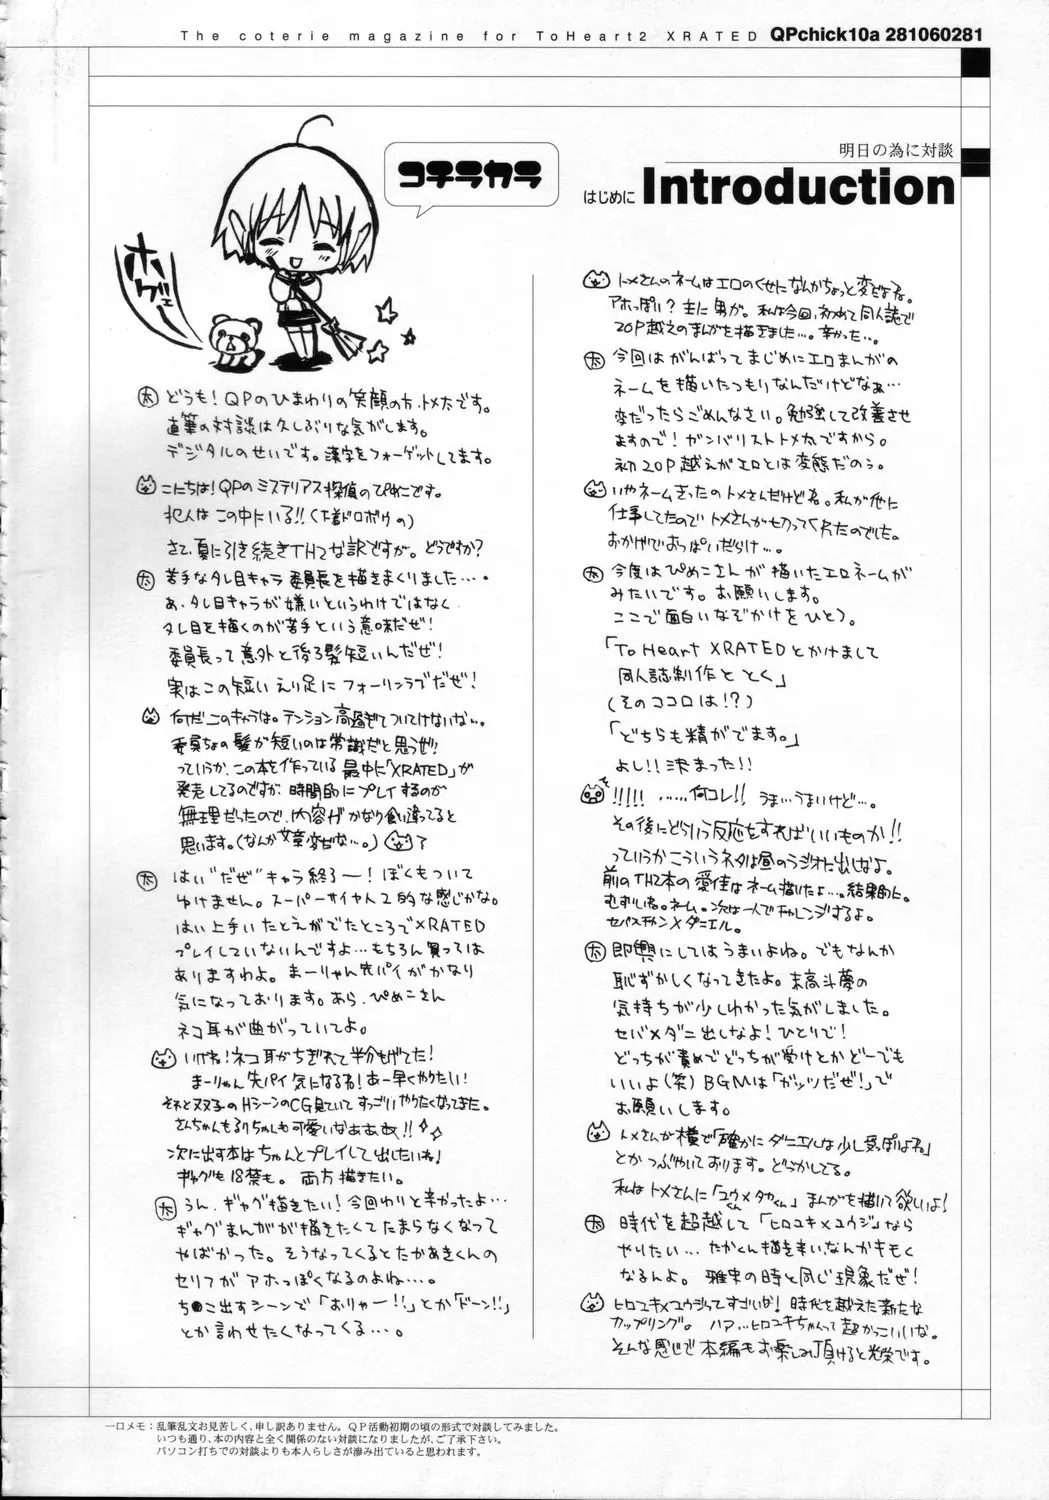 The coterie magazine for ToHeart2 XRATED QPchick10a 281060281
明日の為に対談
はじめに Introduction
コチラカラ
ホゲェー
太 どうも！QPのひまわりの笑顔の方、トメ太です。
直筆の対談は久しぶりな気がします。
デジタルのせいです。漢字をフォーゲットしてます。
こにちは！QPのミステリアス探偵のぴめこです。
犯人はこの中にいる!!(下着ドロボウの)
さて、夏に引き続きTH2な訳ですが。どうですか？
太 苦手なタレ目キャラ委員長を描きまくりました・・・・
あ、タレ目キャラが嫌いというわけではなく
タレ目を描くのが苦手という意味だぜ！
委員長って意外と後ろ髪短いんだぜ！
実はこの短いえり足にフォーリンラブだぜ！
何だこのキャラは。テンション高過ぎてついてけないな・・。
委員ちょの髪が短いのは常識だと思うぜ!
っていうか、この本を作っている最中に「XRATED」が
発売してるのですが、時間的にプレイするのが
無理だったので、内容がかなり食い違ってると
思います。(なんか文章変だな・・・。)？
太 はい“だぜ”キャラ終了ー！ぼくもついて
ゆけません。スーパーサイヤ人2的な感じかな。
はい上手いたとえがでたところでXRATED
プレイしていないんですよ…もちろん買っては
ありますわよ。まーりゃん先パイがかなり
気になっております。あら、ぴめこさん
ネコ耳が曲がっていてよ。
いけね！ネコ耳がちぎれて半分もげてた！
まーりゃん先パイ気になるね！あー早くやりたい！
それと双子のHシーンのCG見ていてすっごいやりたくなってきた。
さんちゃんもるりちゃんも可愛いなぁああ!!
次に出す本はちゃんとプレイして出したいね！
ギャグも18禁も。両方描きたい。
太 うん、ギャグ描きたい！今回わりと辛かったよ…
ギャグまんがが描きたくてたまらなくなって
やばかった。そうなってくるとたかあきくんの
セリフがアホっぽくなるのよね…。
ち●こ出すシーンで「おりゃー!!」とか「ドーン!!」
とか言わせたくなってくる…。
トメさんのネームはエロのくせになんかちょっと変だよね。
アホっぽい？主に男が。私は今回、初めて同人誌で
20P越えのまんがを描きました…。辛かった…。
太 今回はがんばってまじめにエロまんがの
ネームを描いたつもりなんだけどなぁ…
変だったらごめんなさい。勉強して改善させ
ますので！ガンバリストトメ太ですから。
初20P越えがエロとは変態だのぅ。
いやネームきったのトメさんだけどね。私が他に
仕事してたのでトメさんが切ってくれたのでした。
おかげでおっぱいだらけ…。
太 今度はぴめこさんが描いたエロネームが
みたいです。お願いします。
ここで面白いなぞかけをひとつ。
「To Heart XRATEDとかけまして
同人誌制作ととく」
(そのココロは!?)
「どちらも精がでます。」
よし!!決まった!!
!!!!! ……何コレ!! うま…うまいけど…。
その後にどういう反応をすればいいものか!!
っていうかこういうネタは昼のラジオに出しなよ。
前のTH2本の愛佳はネーム描いたよ…。結果的に。
むずいね。ネーム。次は一人でチャレンジするよ。
セバスチャン×ダニエル。
太 即興にしてはうまいよね。でもなんか
恥ずかしくなってきたよ。末高斗夢の
気持ちが少しわかった気がしました。
セバ×ダニ出しなよ！ひとりで！
どっちが責めでどっちが受けとかどーでも
いいよ(笑)BGMは「ガッツだぜ！」で
お願いします。
トメさんが横で「確かにダニエルは少し気っぽいよね」
とかつぶやいております。どうかしてる。
私はトメさんに「ユウ×タカ」まんがを描いて欲しいよ！
くん くん
太 時代を超越して「ヒロユキ×ユウジ」なら
やりたい…たかくん描き辛い、なんかキモく
なるんよ。雅史の時と同じ現象だぜ！
ヒロユキ×ユウジってすごいな！時代を越えた新たな
カップリング。ハァ…ヒロユキちゃんって超かっこいいな。
そんな感じで本編もお楽しみ頂けると光栄です。
一口メモ：乱筆乱文お見苦しく、申し訳ありません。QP活動初期の頃の形式で対談してみました。
いつも通り、本の内容と全く関係のない対談になりましたが、ご了承下さい。
パソコン打ちでの対談よりも本人らしさが滲み出ていると思われます。